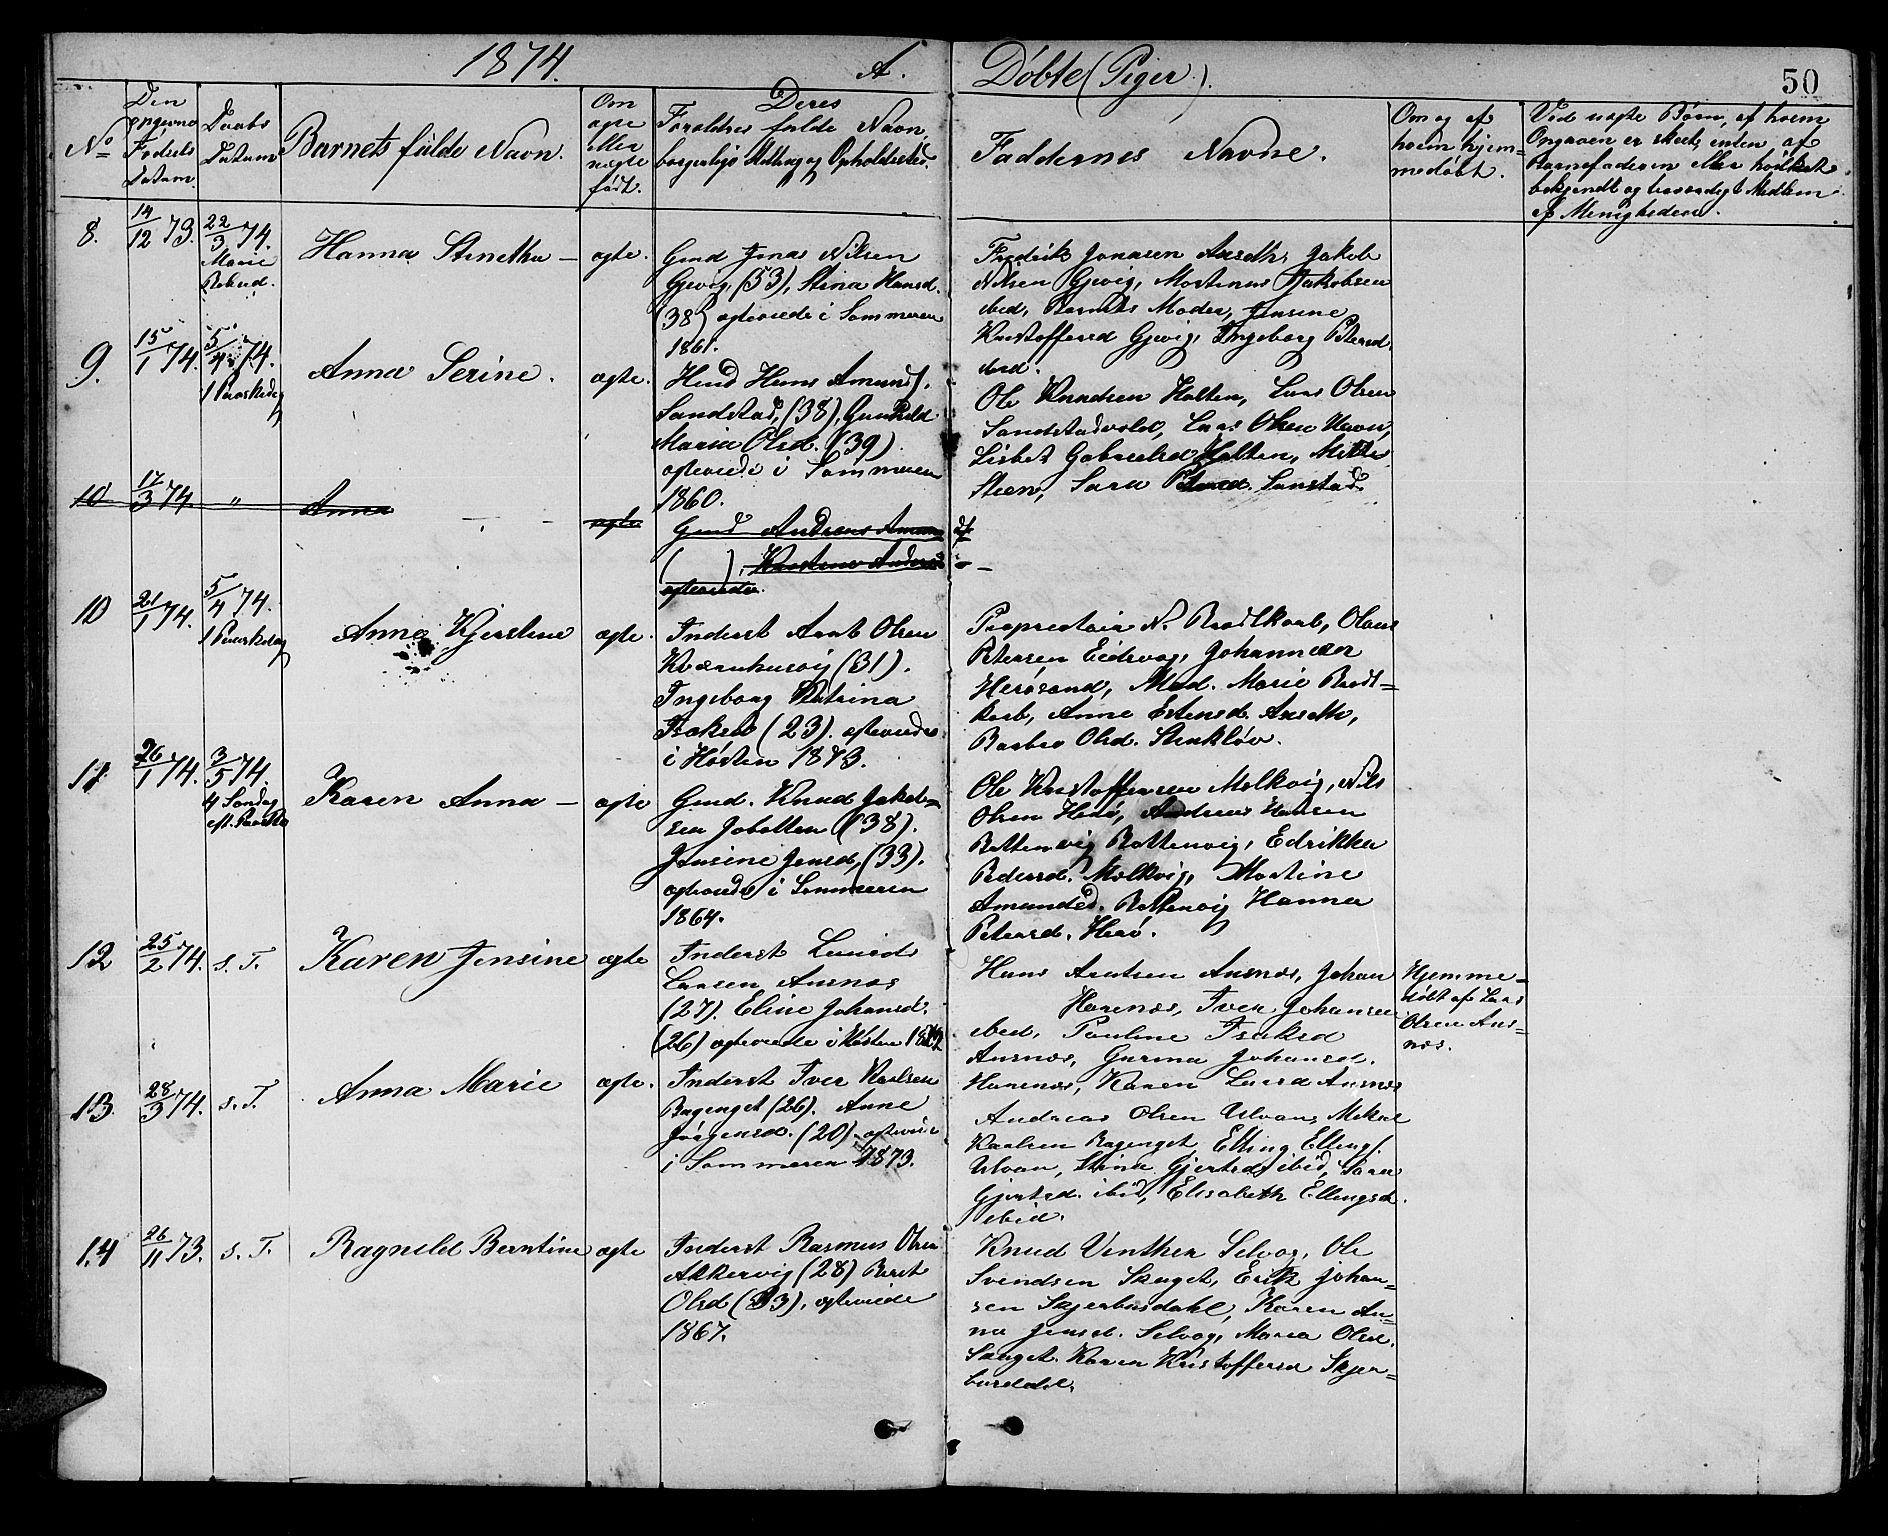 1874.
A.
Døbte (Piger).
50
No
Den
Fødsels
Datum.
Daabs
Datum
Barnets fulde Navn.
Om
ægte
eller
uægte
født.
Deres
Forældres fulde Navn,
borgerlige Stilling og Opholdssted.
Faddernes Navne.
Om og af
hvem hjem=
medøbt.
Ved uægte Børn, af hvem
Angiven er skeet, enten af
Barnefaderen eller
bekjendt og Medlem
af Menigheden.
8.
14/12 73.
22/3 74.
Marie
Hanna —
ægte.
Gmd Jonas Nilsen
Gjevig, (53), Stina Hansd.
(38) ægteviede i Sommeren
1861.
Fredrik Jonasen Anseth, Jakob
Nilsen Gjevig, Martinus Jakobsen
ibid, Barnets Moder, Jensine
Kristoffersd Gjevig, Ingeborg Petersd.
ibid.
9.
15/1 74.
5/4 74.
1 Paaskedag
Anna Serine.
ægte.
Hmd Hans Amunds.
Sandstad, (38), Gunhild
Maria Olsd. (39)
ægteviede i Sommeren
1860.
Ole Knudsen Holten, Lars Olsen
Sandstadvold, Lars Olsen Havn,
Lisbet Gabrielsd Holten, Mette
Steen, Sara Petersd. Sanstad.
10
17/3 74.
"
Anna
ægte
Gmd Andreas
( ), Kristine
ægteviede.
10
21/1 74.
5/4 74.
1 Paaskedag
Anna Kjerstine
ægte.
Inderst Arnt Olsen
Kværnhusvig (31).
Ingeborg Katrina
Isaksd (23). ægteviede
i Høsten 1873.
Proprietair N. Brodtkorb, Olaus
Petersen Eidsvog, Johannesen
Herøsand, Mad. Marie Brodt=
korb, Anne Estensd. Anseth,
Barbro Olsd. Strukløv.
11.
26/1 74.
3/5 74.
4 Søndag
eft. Paaske
Karen Anna —
ægte
Gmd. Knud Jakob=
sen Jobotten (38).
Jensine Jensd, (33).
ægteviede i Sommeren
1864.
Ole Kristoffersen Melkvig, Nils
Olsen Herø, Andreas Hansen
Bottenvig Bottenvig, Edrikka
Pedersd. Melkvig, Martine
Amundsd. Bottenvig Hanna
Petersd. Herø.
12
25/2 74.
s. T.
Karen Jensine
ægte
Inderst
Larsen Ansnæs
(27). Eline Johansd.
(26) ægteviede i Høsten
Hans Arntsen Ansnæs, Johan
Harenæs, Iver Johansen
ibid, Pauline Isaksd
Ansnæs, Gurina Johansd.
Harenæs, Karen Larsd Ansnæs
Hjemme=
døbt af Lars
Olsen Ans=
næs.
13.
28/3 74.
s. T.
Anna Marie
ægte.
Inderst Iver Karlsen
Bagenget (26). Anne
Jørgensd. (20). ægteviede
i Sommeren 1873.
Andreas Olsen Ulvan, Mikal
Karlsen Bagenget, Elling Ellings.
Ulvan, Stina Gjertsd ibid, Sara
Gjertsd. ibid, Elisabeth Ellingsd.
ibid.
14
26/11 73.
s. T.
Ragnild Berntine
ægte
Inderst Rasmus Olsen
Akkervig (28) Beret
Olsd (33), ægteviede
1867.
Knud Vinther Selvog, Ole
Svendsen Skaget, Erik Johan=
sen Skjerbusdahl, Karen An=
na Jensd. Selvog, Maria Olsd.
Skaget. Karen Kristoffersd Skjer=
busdahl.